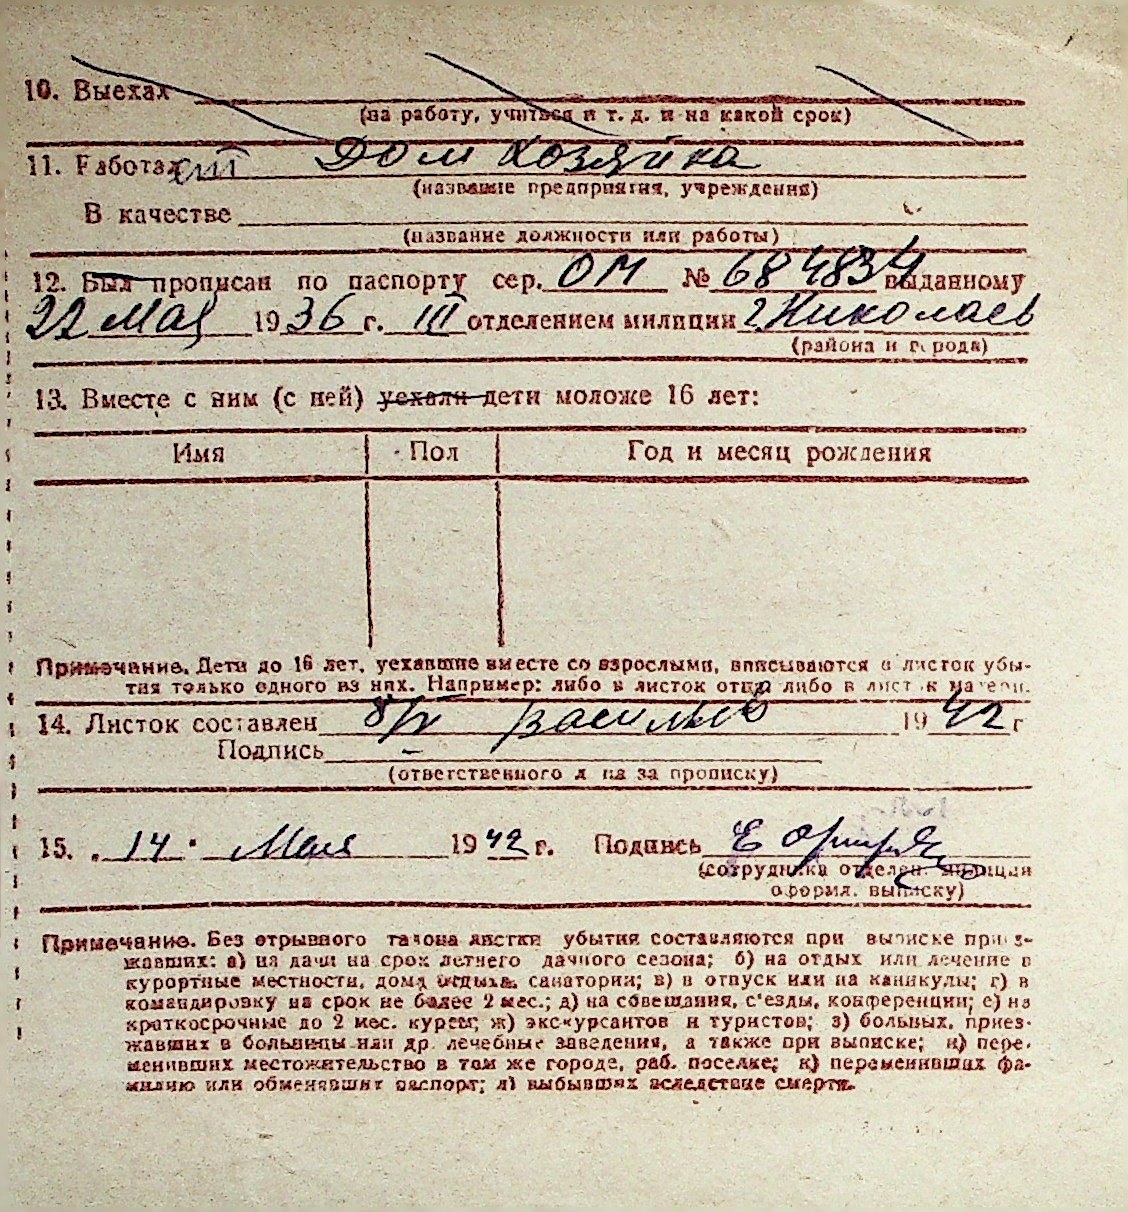 10. Выехал
(на работу, учиться и т. д. и на какой срок)
11. Работа Дом хозяйка
(название предприятия, учреждения)
В качестве
(название должности или работы)
12. Был прописан по паспорту сер. ОМ № 684834 выданному
22 Мая 1936 г. III отделением милиции г. Николаев
(района и города)
13. Вместе с ним (с ней) уехали дети моложе 16 лет:
Имя Пол Год и месяц рождения
Примечание. Дети до 16 лет, уехавшие вместе со взрослыми, вписываются в листок убы-
тия только одного из них. Например: либо в листок отца либо в листок матери.
14. Листок составлен 1942 г
Подпись
(ответственного л на за прописку)
15. „14" Мая 1942 г. Подпись
(сотрудника отделен. милиции
оформл. выписку)
Примечание. Без отрывного талона листки убытия составляются при выписке приез-
жавших: а) на дачи на срок летнего дачного сезона; б) на отдых или лечение в
курортные местности, дома отдыха, санатории; в) в отпуск или на каникулы; г) в
командировку на срок не более 2 мес.; д) на совещания, с'езды, конференции; е) на
краткосрочные до 2 мес. курсы; ж) экскурсантов и туристов; з) больных, приез-
жавших в больницы или др. лечебные заведения, а также при выписке; и) пере-
менивших местожительство в том же городе, раб. поселке; к) переменивших фа-
милию или обменявших паспорт; л) выбывших вследствие смерти.